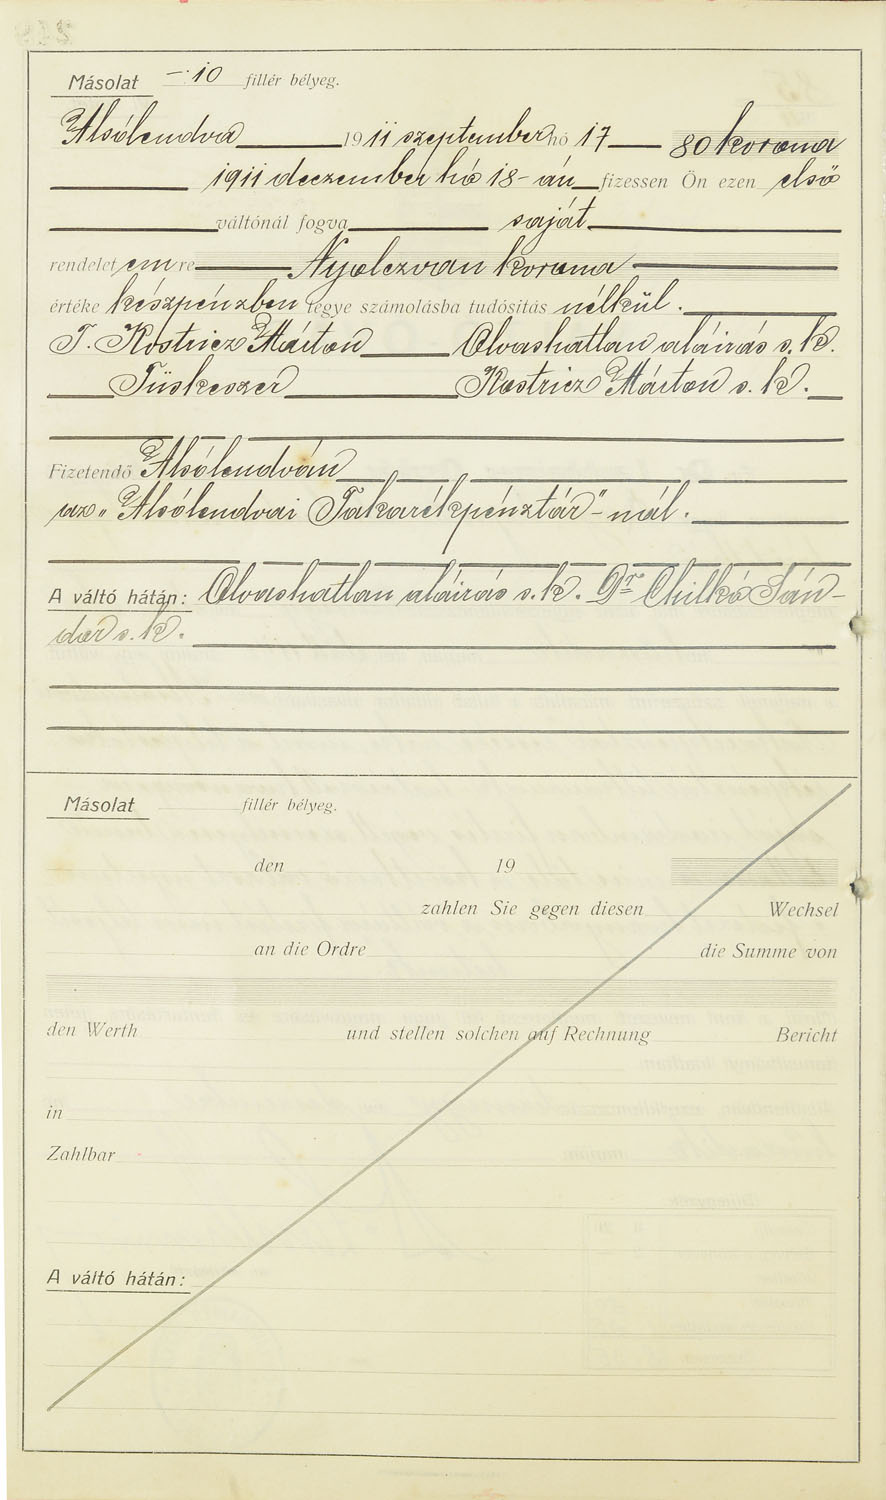 Másolat —·10 fillér bélyeg.
Alsólendva 1911 szeptember hó 17 80 korona
1911 deczember hó 18-án fizessen Ön ezen első
váltónál fogva saját
rendeletemre Nyolczvan korona
értéke készpénzben tegye számolásba tudósítás nélkül.
T. Kostricz Márton Olvashatlan aláirás s. k.
Tüskeszer Kostricz Márton s. k.
Fizetendő Alsólendván
az „Alsólendvai Takarékpénztár"-nál.
A váltó hátán: Olvashatlan aláirás s. k. Dr Chilkó Sán-
dor s. k.
Másolat fillér bélyeg.
den 19
zahlen Sie gegen diesen Wechsel
an die Ordre die Summe von
den Werth und stellen solchen auf Rechnung Bericht
in
Zahlbar
A váltó hátán: